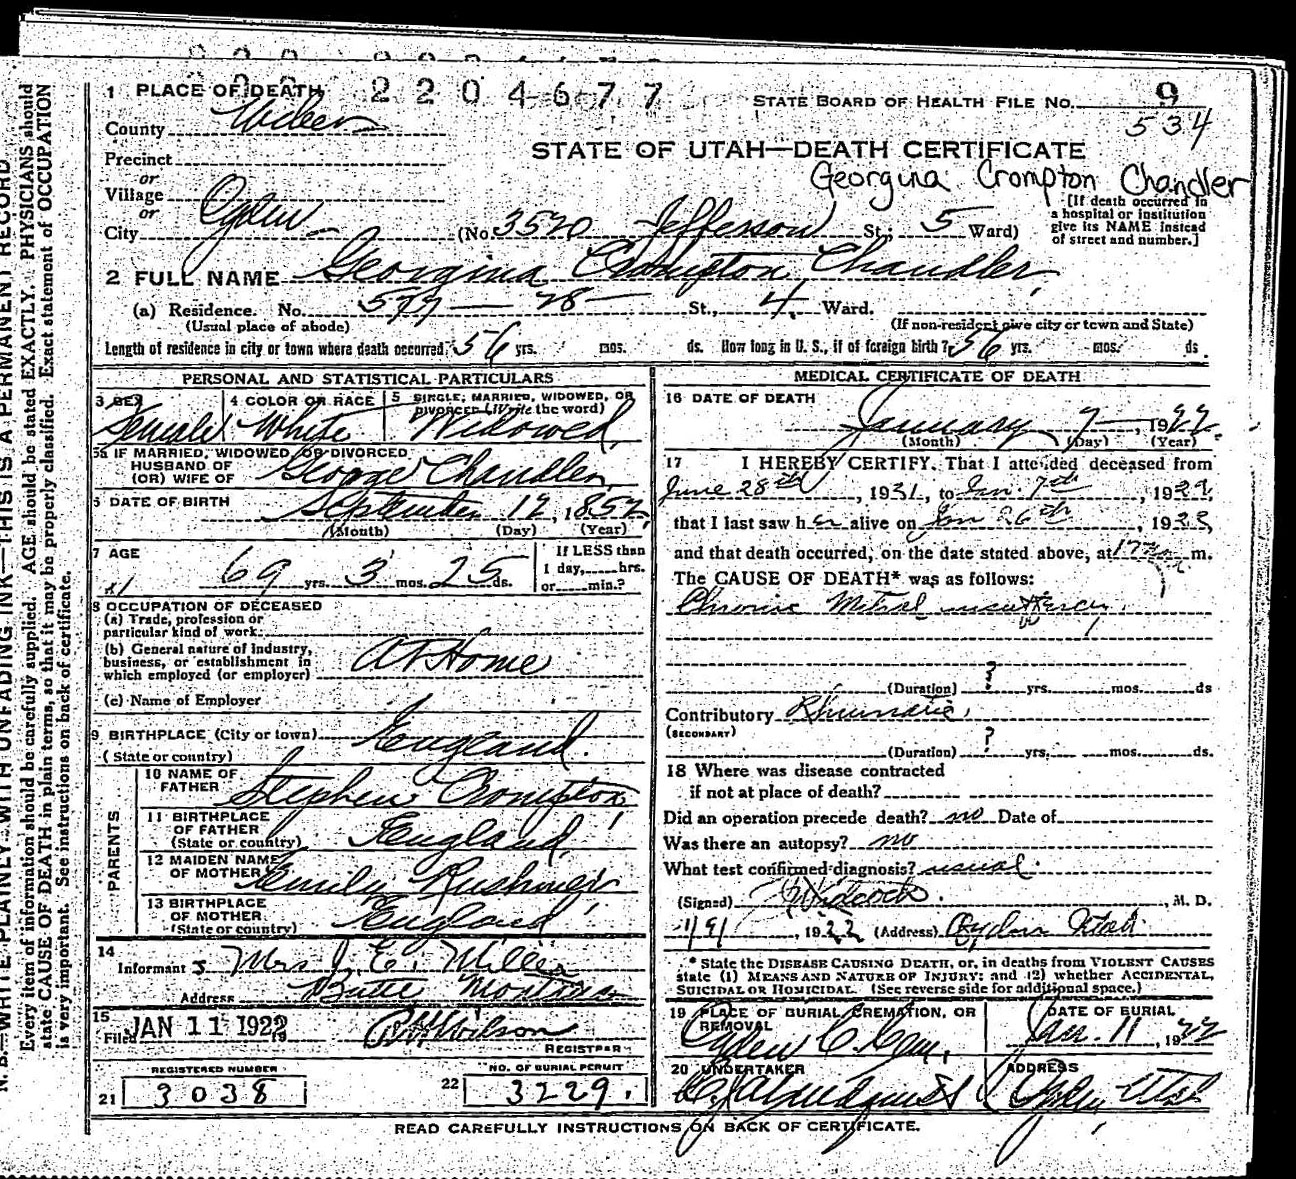 2204677
1 PLACE OF DEATH
STATE BOARD OF HEALTH FILE No. 9
534
County Weber
STATE OF UTAH—DEATH CERTIFICATE
Precinct
or
Georgina Crompton Chandler
Village
or
City Ogden (No. 3520 Jefferson St; 5 Ward)
[If death occurred in
a hospital or institution
give its NAME instead
of street and number.]
2 FULL NAME Georgina Crompton Chandler
(a) Residence. No. 577 – 28 – St., 4. Ward.
(Usual place of abode) (If non-resident give city or town and State)
Length of residence in city or town where death occurred 56 yrs. mos. ds. How long in U. S., if of foreign birth? 56 yrs. mos. ds.
PERSONAL AND STATISTICAL PARTICULARS
3 SEX Female
4 COLOR OR RACE White
5 SINGLE, MARRIED, WIDOWED, OR DIVORCED (Write the word) Widowed
5a IF MARRIED, WIDOWED, OR DIVORCED
HUSBAND OF
(OR) WIFE OF George Chandler
6 DATE OF BIRTH September 12, 1852
(Month) (Day) (Year)
7 AGE 69 yrs. 3 mos. 25 ds.
If LESS than
1 day, hrs.
or min.?
8 OCCUPATION OF DECEASED
(a) Trade, profession or
particular kind of work
(b) General nature of Industry,
business, or establishment in
which employed (or employer) At Home
(c) Name of Employer
9 BIRTHPLACE (City or town) England
(State or country)
PARENTS
10 NAME OF
FATHER Stephen Crompton
11 BIRTHPLACE
OF FATHER
(State or country) England
12 MAIDEN NAME
OF MOTHER Emily Rushmer
13 BIRTHPLACE
OF MOTHER
(State or country) England
14
Informant Mrs J. E. Miller
Address Butte Montana
15
Filed JAN 11 1922 Wilson
REGISTRAR
REGISTERED NUMBER
21 3038
NO. OF BURIAL PERMIT
22 3229
MEDICAL CERTIFICATE OF DEATH
16 DATE OF DEATH
January 7, 1922
(Month) (Day) (Year)
17 I HEREBY CERTIFY, That I attended deceased from
June 28th, 1921, to Jan. 7th, 1922
that I last saw her alive on Jan 6th, 1922
and that death occurred, on the date stated above, at m.
The CAUSE OF DEATH* was as follows:
Chronic Mitral insufficiency
(Duration) ? yrs. mos. ds
Contributory Rheumatic
(SECONDARY)
(Duration) ? yrs. mos. ds.
18 Where was disease contracted
if not at place of death?
Did an operation precede death? no Date of
Was there an autopsy? no
What test confirmed diagnosis? usual
(Signed) , M. D.
1/9/, 1922 (Address) Ogden Utah
* State the DISEASE CAUSING DEATH, or, in deaths from VIOLENT CAUSES
state (1) MEANS AND NATURE OF INJURY; and (2) whether ACCIDENTAL,
SUICIDAL OR HOMICIDAL. (See reverse side for additional space.)
19 PLACE OF BURIAL, CREMATION, OR
REMOVAL
Ogden C. Cem.
DATE OF BURIAL
Jan. 11, 1922
20 UNDERTAKER
ADDRESS
Ogden, Utah
READ CAREFULLY INSTRUCTIONS ON BACK OF CERTIFICATE.
N. B.—WRITE PLAINLY WITH UNFADING INK—THIS IS A PERMANENT RECORD
Every item of information should be carefully supplied. AGE should be stated EXACTLY. PHYSICIANS should
state CAUSE OF DEATH in plain terms, so that it may be properly classified. Exact statement of OCCUPATION
is very important. See instructions on back of certificate.